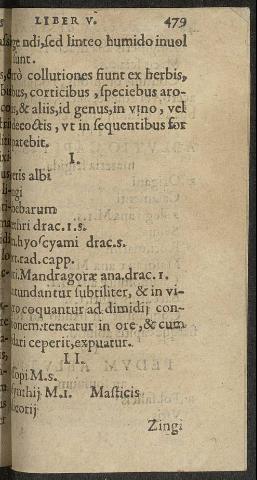 LIBER V. 479
gendi, sed linteo humido inuol
sunt.
collutiones fiunt ex herbis,
corticibus, speciebus aro-
& aliis, id genus, in vino, vel
decoctis, vt in sequentibus for
patebit.
I.
albi
drac.1.s.
hyoscyami drac.s.
rad.capp.
Mandragoræ ana.drac.1.
tundantur subtiliter, & in vi-
coquantur ad dimidij con-
teneatur in ore, & cum
ceperit, expuatur.
II.
M.s.
M.1. Masticis
Zingi